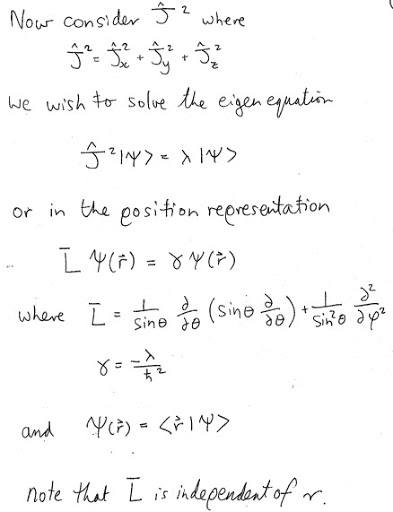 Now consider Ĵ² where
Ĵ² = Ĵₓ² + Ĵᵧ² + Ĵ_z²
we wish to solve the eigen equation
Ĵ²|Ψ> = λ|Ψ>
or in the position representation
L̄ Ψ(r⃗) = γ Ψ(r⃗)
where L̄ = 1/sinθ ∂/∂θ (sinθ ∂/∂θ) + 1/sin²θ ∂²/∂φ²
γ = -λ/ħ²
and Ψ(r⃗) = <r⃗|Ψ>
note that L̄ is independent of r.